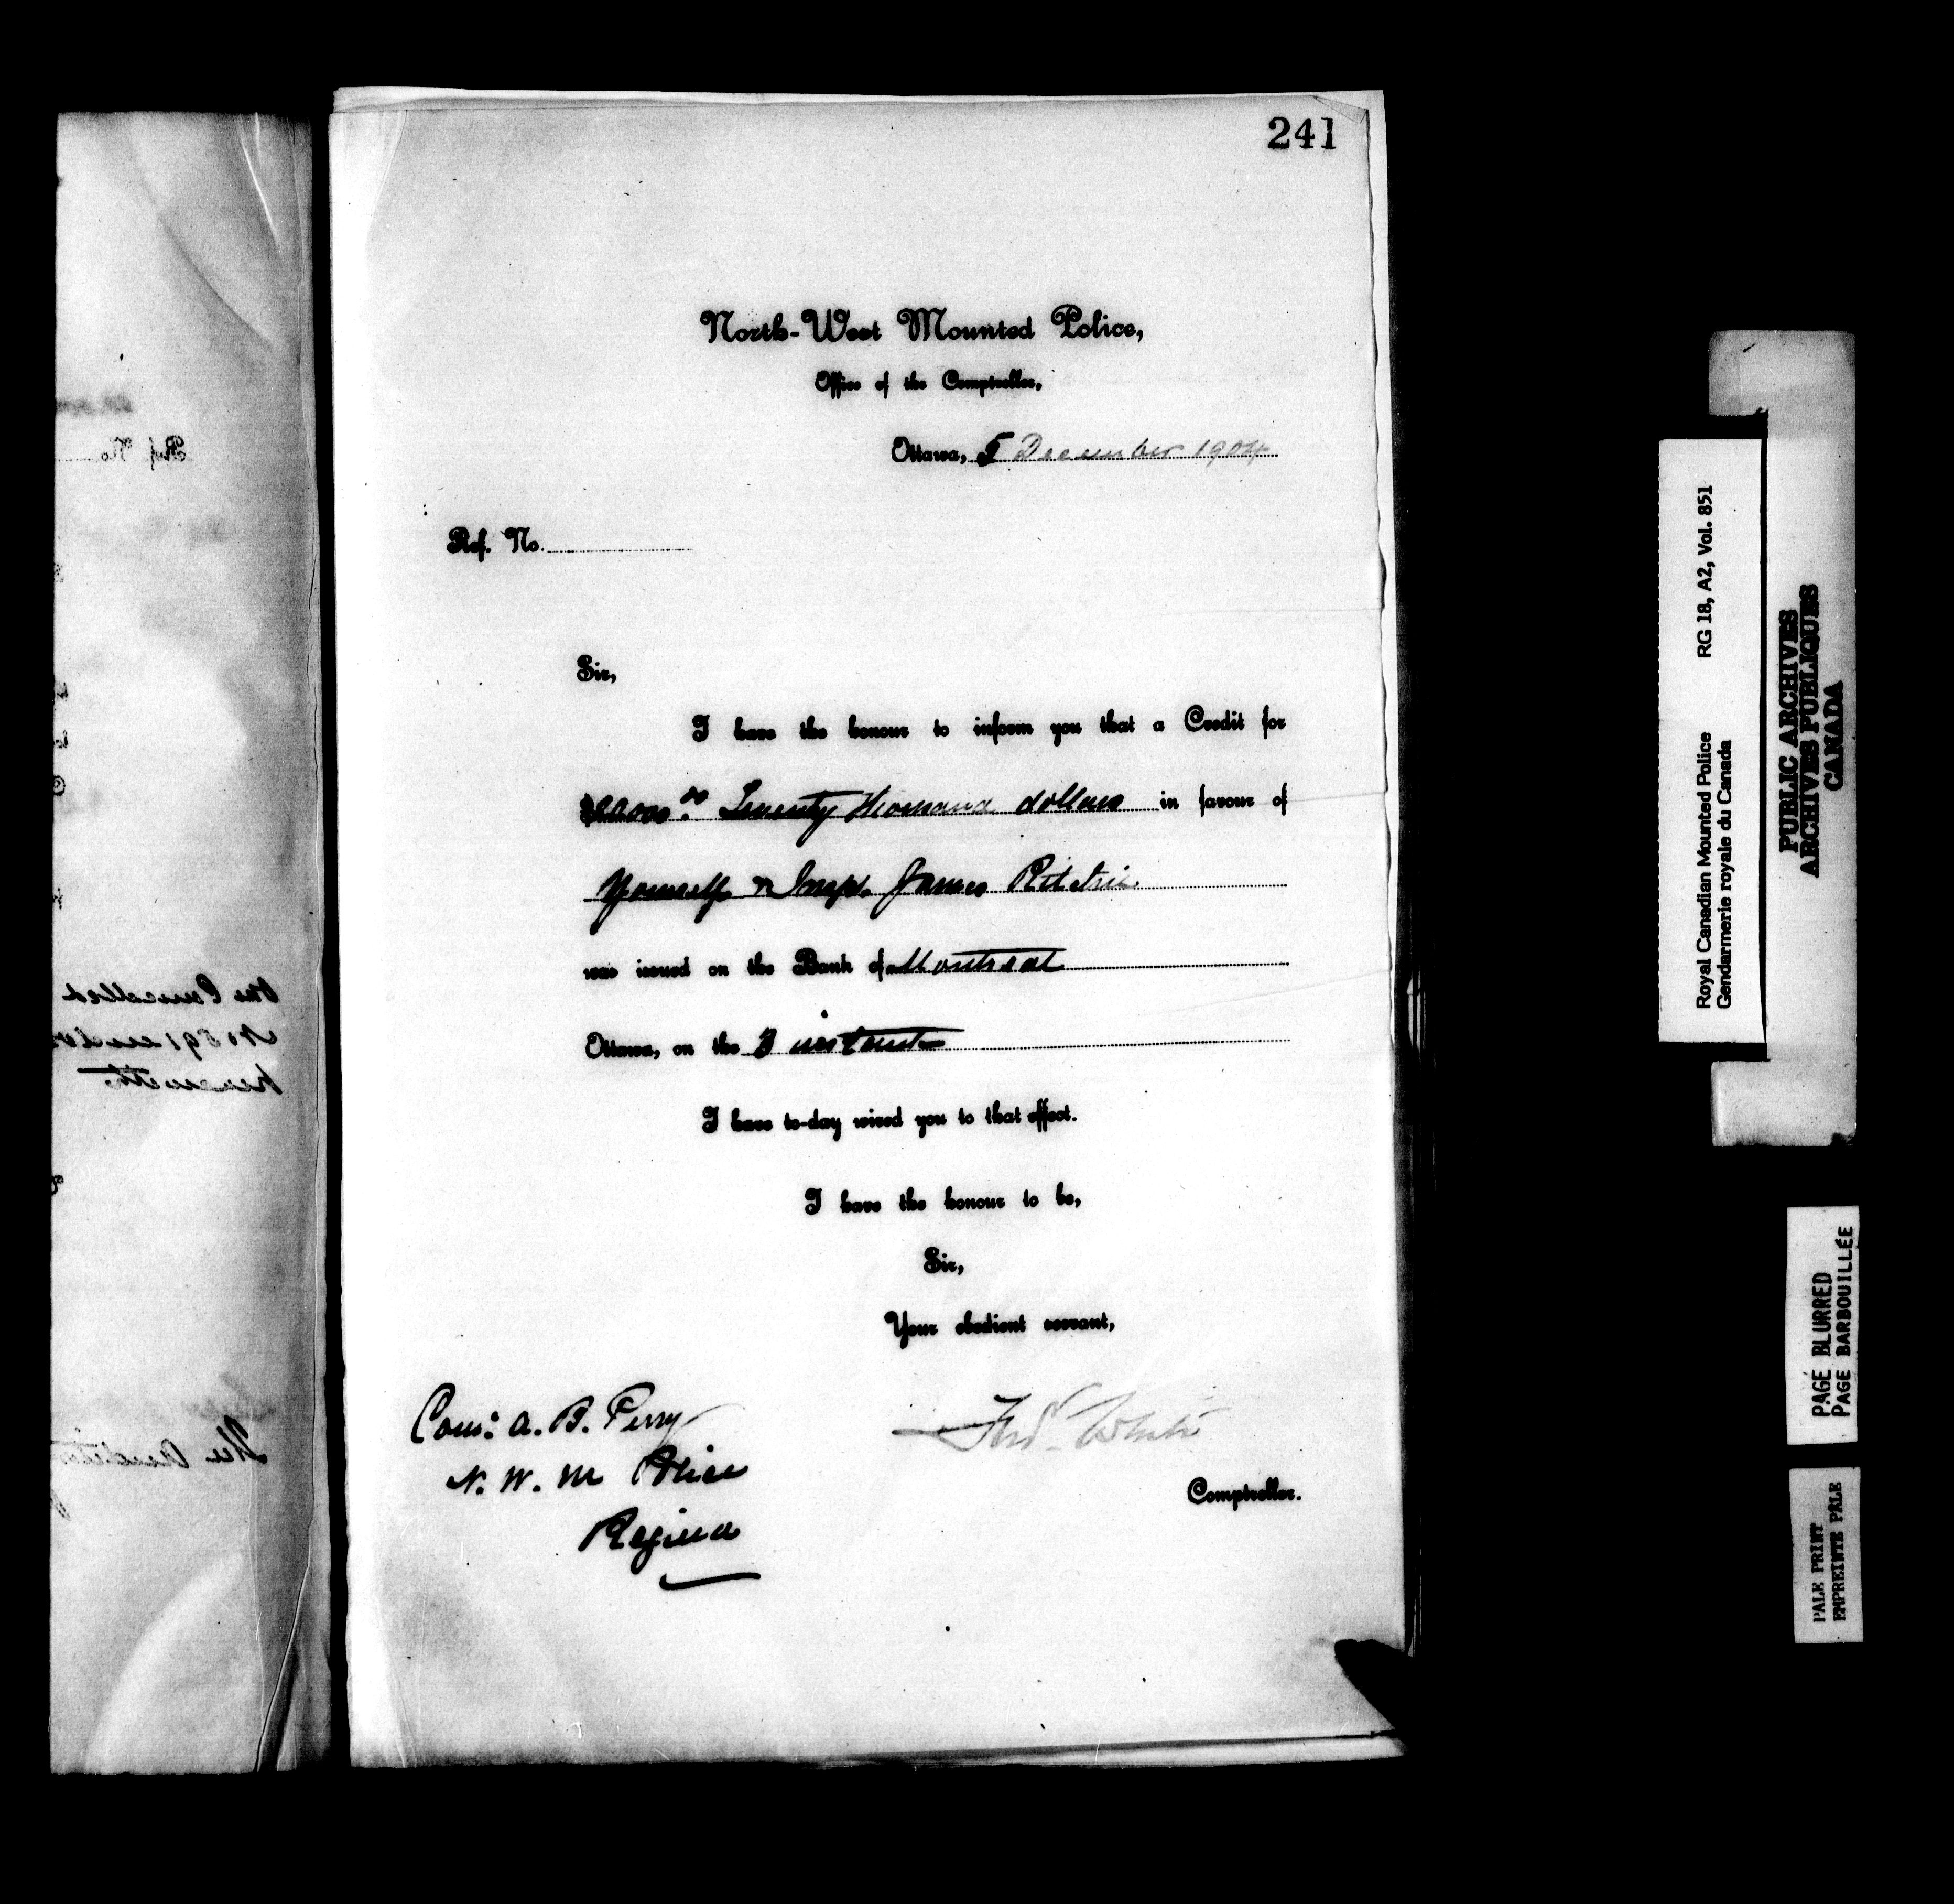 241
North-West Mounted Police,
Office of the Comptroller,
Ottawa, 5 December 1904
Ref. No.
Sir,
I have the honour to inform you that a Credit for
dollars in favour of
Yourself & Insp. James Ritchie
was issued on the Bank of Montreal
Ottawa, on the 3 instant
I have to-day wired you to that effect.
I have the honour to be,
Sir,
Your obedient servant,
Fred White
Comptroller.
Com: A. B. Perry
N. W. M Police
Regina
Royal Canadian Mounted Police RG 18, A2, Vol. 851
Gendarmerie royale du Canada
PUBLIC ARCHIVES
ARCHIVES PUBLIQUES
CANADA
PAGE BLURRED
PAGE BARBOUILLÉE
PALE PRINT
EMPREINTE PÂLE